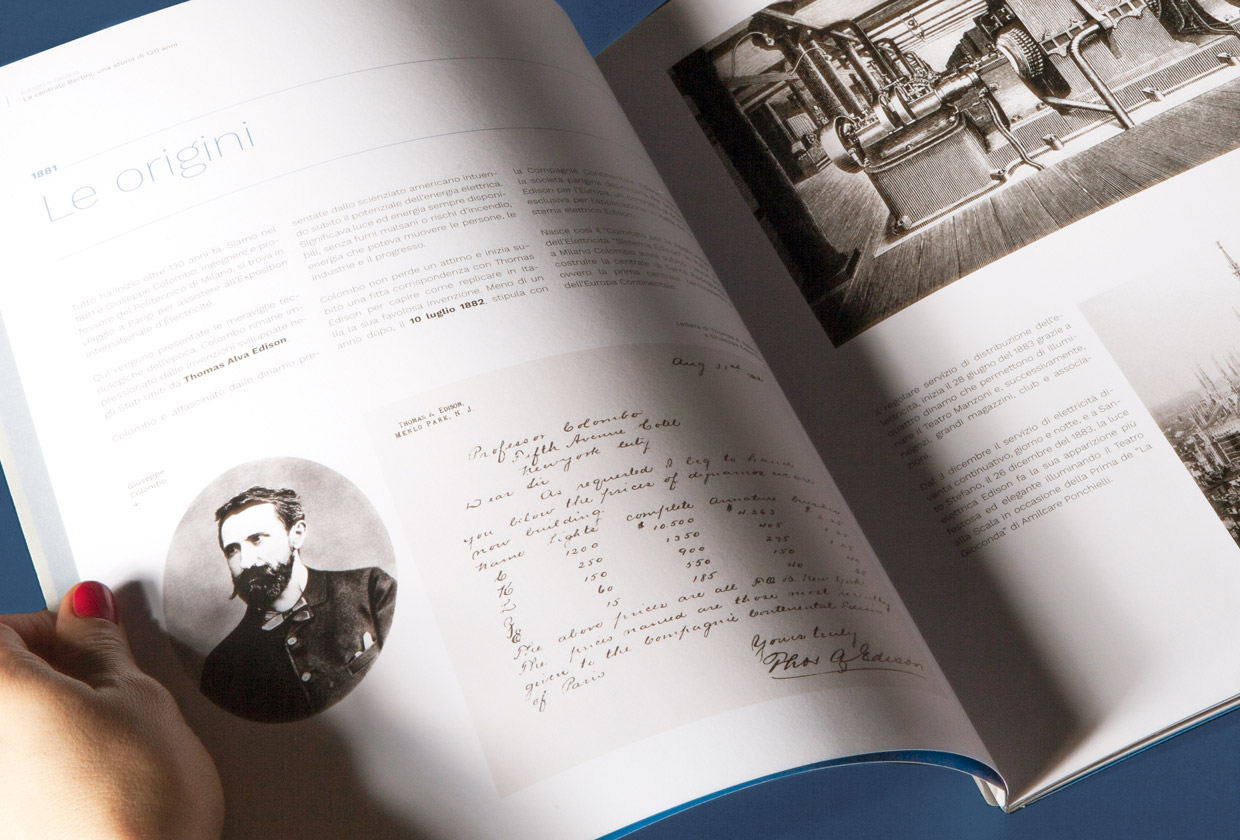 La centrale Bertini, una storia di 120 anni
1881
Le origini
Tutto ha inizio oltre 120 anni fa. Siamo nel
1881 e Giuseppe Colombo, ingegnere e pro-
fessore del Politecnico di Milano, si trova in
viaggio a Parigi per assistere all'Exposition
internationale d'Électricité.
Qui vengono presentate le meraviglie tec-
nologiche dell'epoca. Colombo rimane im-
pressionato dalle invenzioni sviluppate ne-
gli Stati Uniti da Thomas Alva Edison
Colombo è affascinato dalle dinamo pre-
sentate dallo scienziato americano intuen-
do subito il potenziale dell'energia elettrica.
Significava luce ed energia sempre disponi-
bili, senza fumi malsani o rischi d'incendio,
energia che poteva muovere le persone, le
industrie e il progresso.
Colombo non perde un attimo e inizia su-
bito una fitta corrispondenza con Thomas
Edison per capire come replicare in Ita-
lia la sua favolosa invenzione. Meno di un
anno dopo, il 10 luglio 1882, stipula con
la Compagnie Continentale
la società parigina
Edison per l'Europa,
esclusiva per l'applicazione
stema elettrico Edison.
Nasce così il "Comitato per
dell'Elettricità "Sistema Edison
a Milano Colombo
costruire la centrale di Santa
ovvero la prima centrale
dell'Europa Continentale.
Giuseppe
Colombo
Lettera di
Aug
Thomas A. Edison.
Menlo Park, N. J.
Professor Colombo
Fifth Avenue Hotel
New york City
Dear Sir
As requested I beg to hand
you below the prices of dynamos we are
now building.
name Lights complete armature
1200 $ 10.500 $ 4.263
250 1350 405
150 900 275
60 550 150
15 185 40
The above prices are all F.O.B. New York
The prices named are those most recently
given to the Compagnie Continental Edison
of Paris
Yours truly
Thos A Edison
Il regolare servizio di distribuzione dell'e-
lettricità, inizia il 28 giugno del 1883 grazie a
quattro dinamo che permettono di illumi-
nare il Teatro Manzoni e, successivamente,
negozi, grandi magazzini, club e associa-
zioni.
Dal 3 dicembre il servizio di elettricità di-
venta continuativo, giorno e notte, e a San-
to Stefano, il 26 dicembre del 1883, la luce
elettrica Edison fa la sua apparizione più
festosa ed elegante illuminando il Teatro
alla Scala in occasione della Prima de "La
Gioconda" di Amilcare Ponchielli.